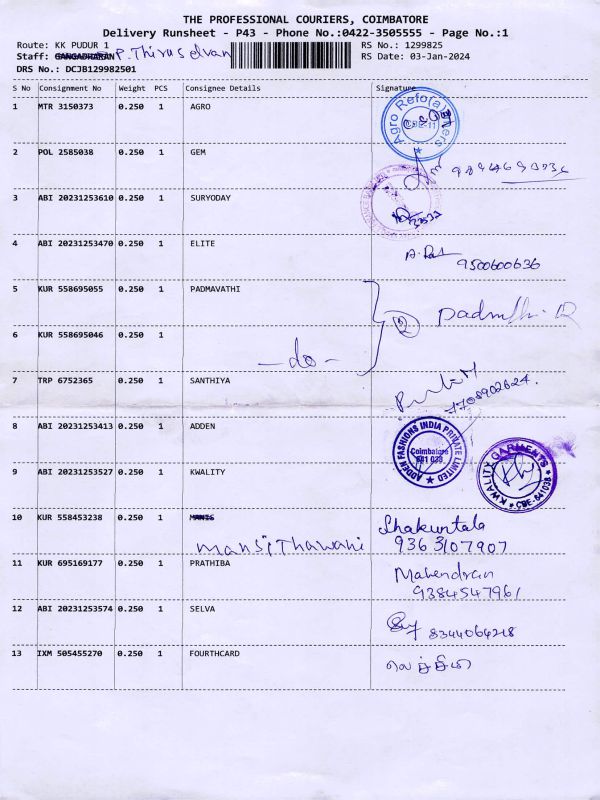 THE PROFESSIONAL COURIERS, COIMBATORE
Delivery Runsheet - P43 - Phone No.:0422-3505555 - Page No.:1
Route: KK PUDUR 1 RS No.: 1299825
Staff: GANGADHARAN P. Thiruselvan RS Date: 03-Jan-2024
DRS No.: DCJB129982501
S No Consignment No Weight PCS Consignee Details Signature
1 MTR 3150373 0.250 1 AGRO
2 POL 2585038 0.250 1 GEM
3 ABI 20231253610 0.250 1 SURYODAY
4 ABI 20231253470 0.250 1 ELITE
9500600636
5 KUR 558695055 0.250 1 PADMAVATHI
6 KUR 558695046 0.250 1
-do-
7 TRP 6752365 0.250 1 SANTHIYA
7708902624.
8 ABI 20231253413 0.250 1 ADDEN
ADDEN FASHIONS INDIA PRIVATE LIMITED
Coimbatore
641 038
9 ABI 20231253527 0.250 1 KWALITY
KWALITY GARMENTS
CBE-641038
10 KUR 558453238 0.250 1 Shakuntala
Mansi Thawani 9363107907
11 KUR 695169177 0.250 1 PRATHIBA Mahendran
9384547961
12 ABI 20231253574 0.250 1 SELVA
13 IXM 505455270 0.250 1 FOURTHCARD